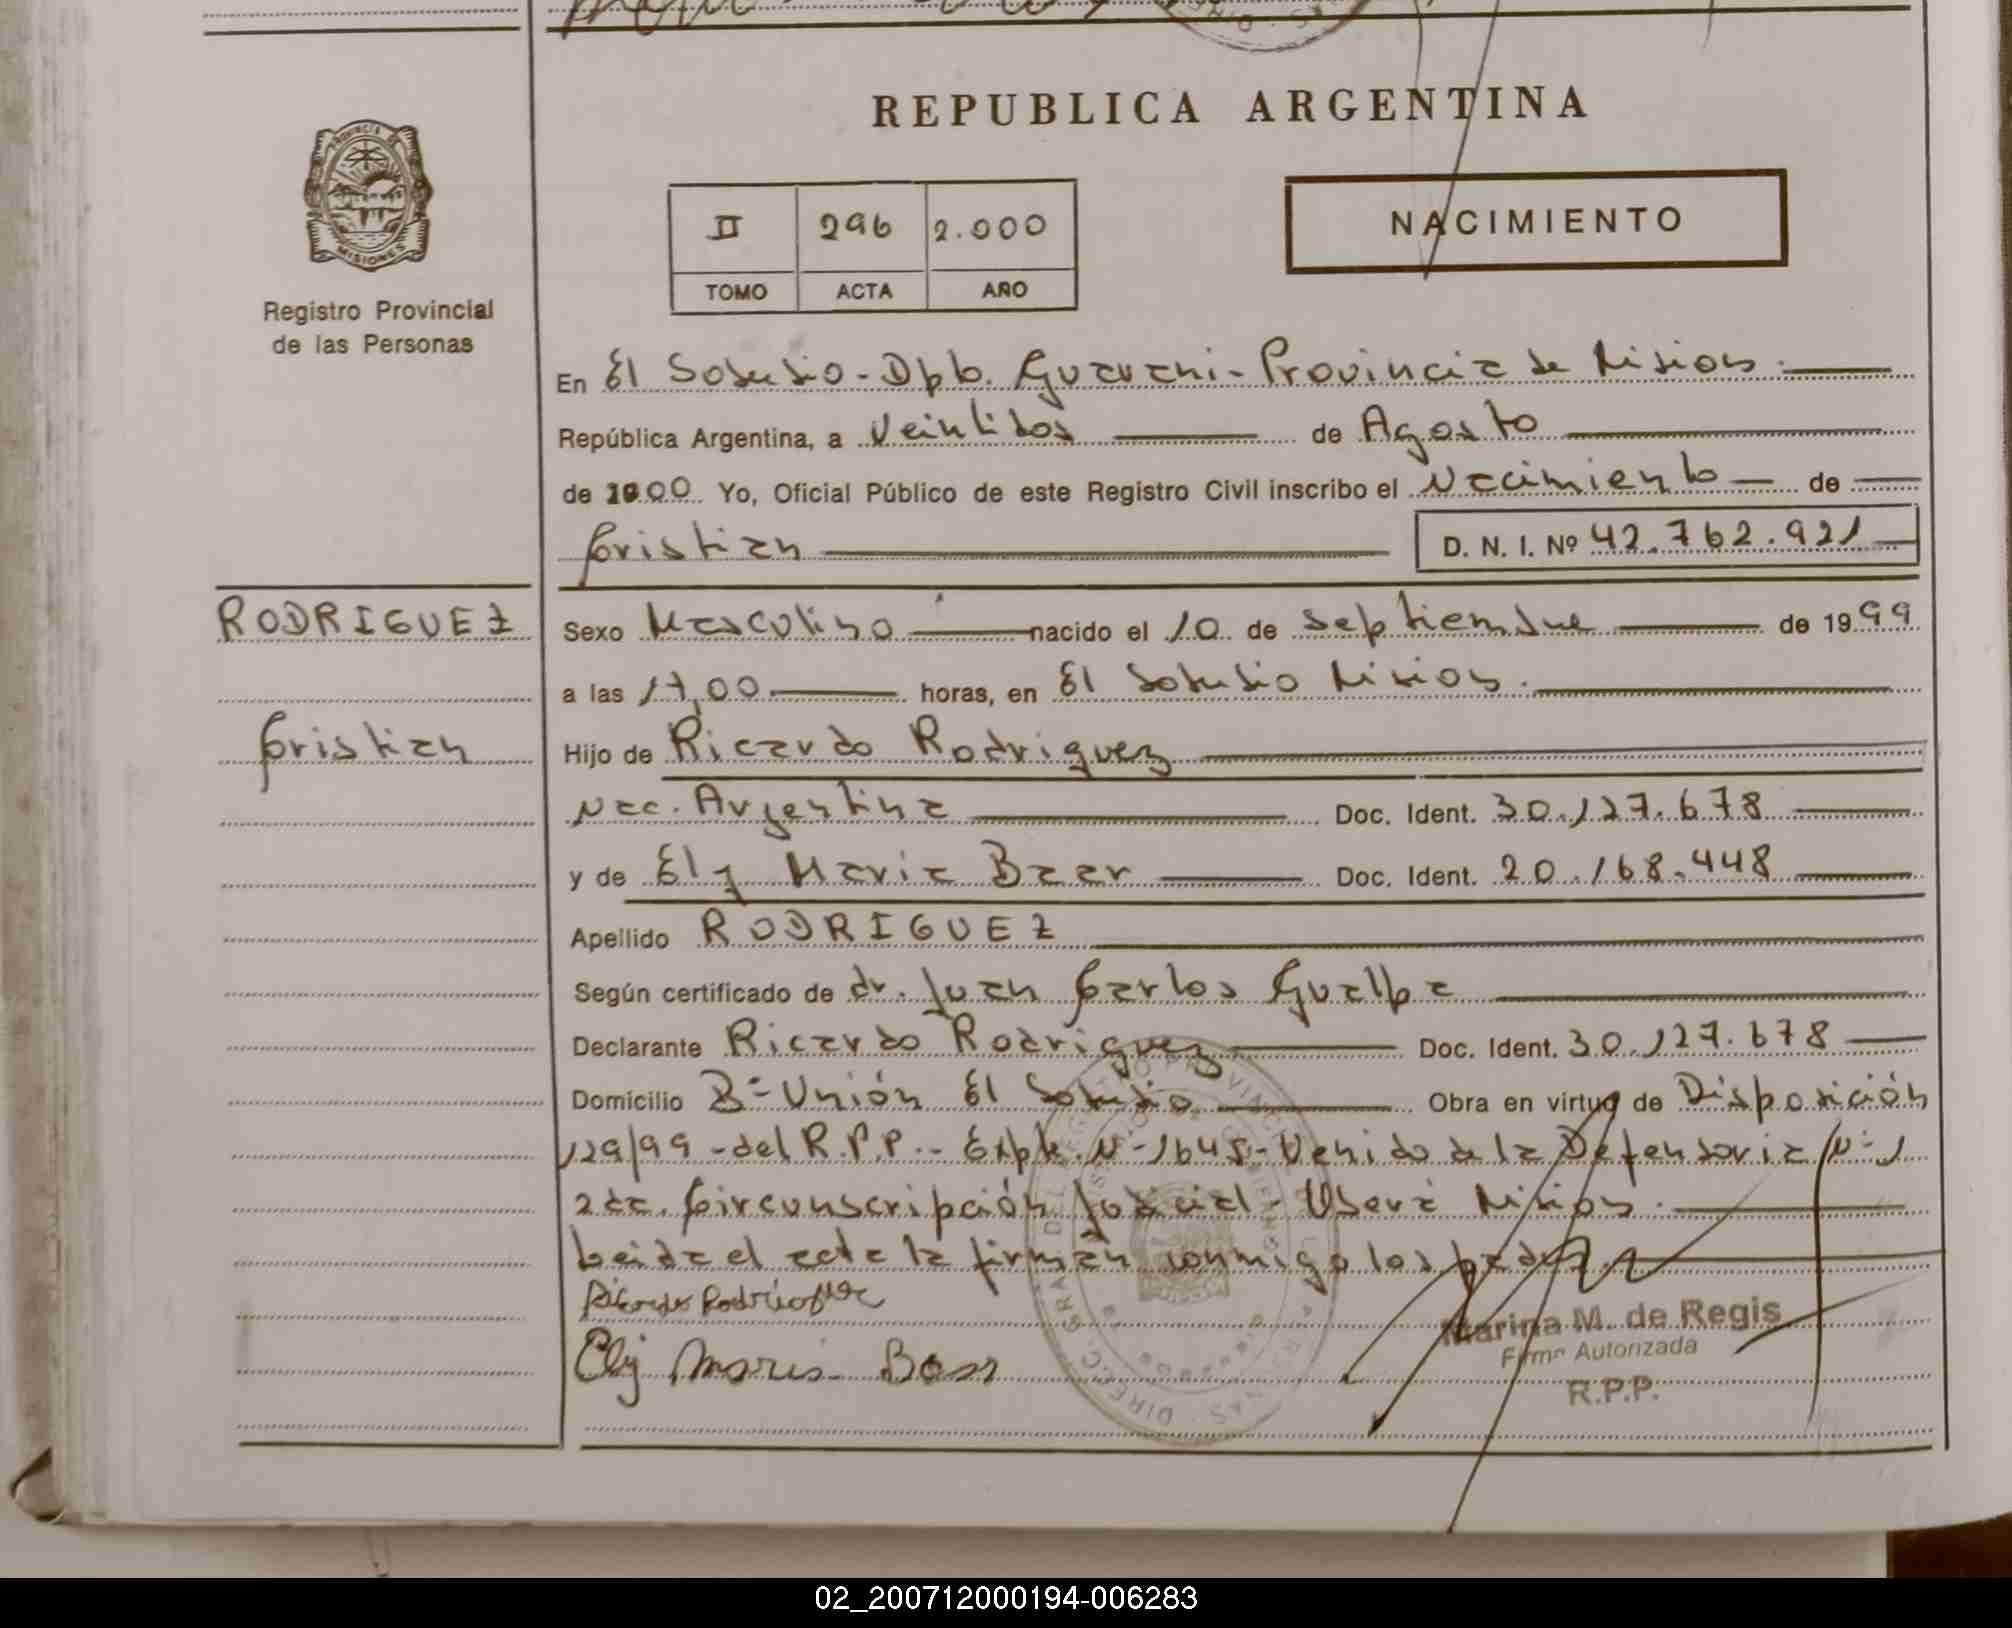 REPUBLICA ARGENTINA
PROVINCIA DE
MISIONES
Registro Provincial
de las Personas
II 296 2.000
TOMO ACTA AÑO
NACIMIENTO
En El Soberbio - Dpto. Guarani - Provincia de Misiones.
República Argentina, a Veintidos de Agosto
de 2000 Yo, Oficial Público de este Registro Civil inscribo el Nacimiento de
Cristian D. N. I. Nº 42.762.921
RODRIGUEZ
Cristian
Sexo Masculino nacido el 10 de Septiembre de 1999
a las 17,00 horas, en El Soberbio Misiones.
Hijo de Ricardo Rodriguez
Nac. Argentina Doc. Ident. 30.127.678
y de Ely Maria Baer Doc. Ident. 20.168.448
Apellido RODRIGUEZ
Según certificado de dr. Juan Carlos Gualpa
Declarante Ricardo Rodriguez Doc. Ident. 30.127.678
Domicilio Bº Unión El Soberbio Obra en virtud de Disposición
129/99 - del R.P.P. - Expte. Nº 1645 - Venido de la Defensoria Nº 1
2da. Circunscripción Judicial - Oberá Misiones.
Leida el acta la firman conmigo los padres.
Ricardo Rodriguez
Ely Maria Baer
Marina M. de Regis
Firma Autorizada
R.P.P.
02_200712000194-006283